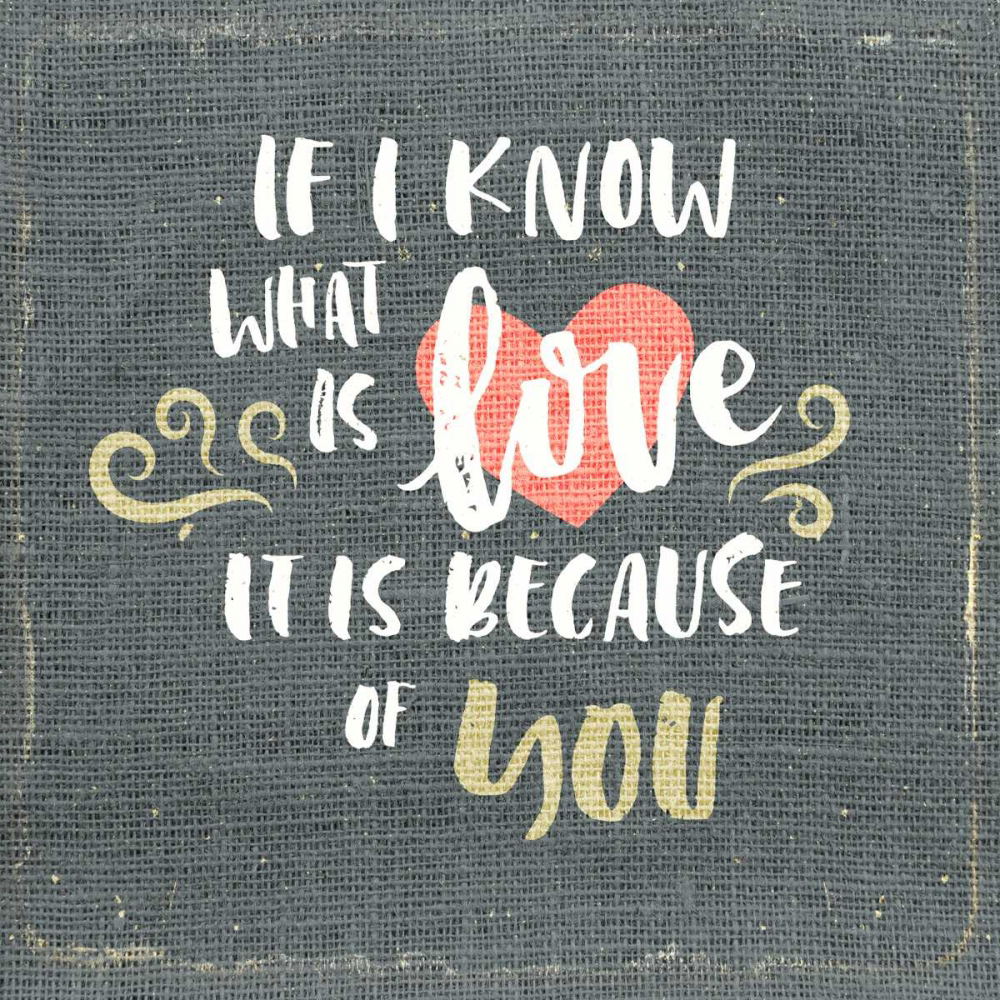 IF I KNOW
WHAT
IS love
IT IS BECAUSE
OF YOU